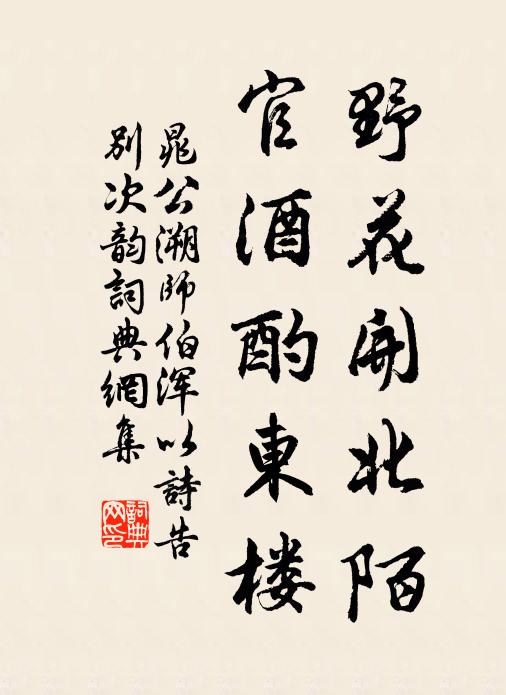 野花开北陌
官酒酌東楼
晁公溯師伯浑以詩告
别次韵詞典網集
詞典网印